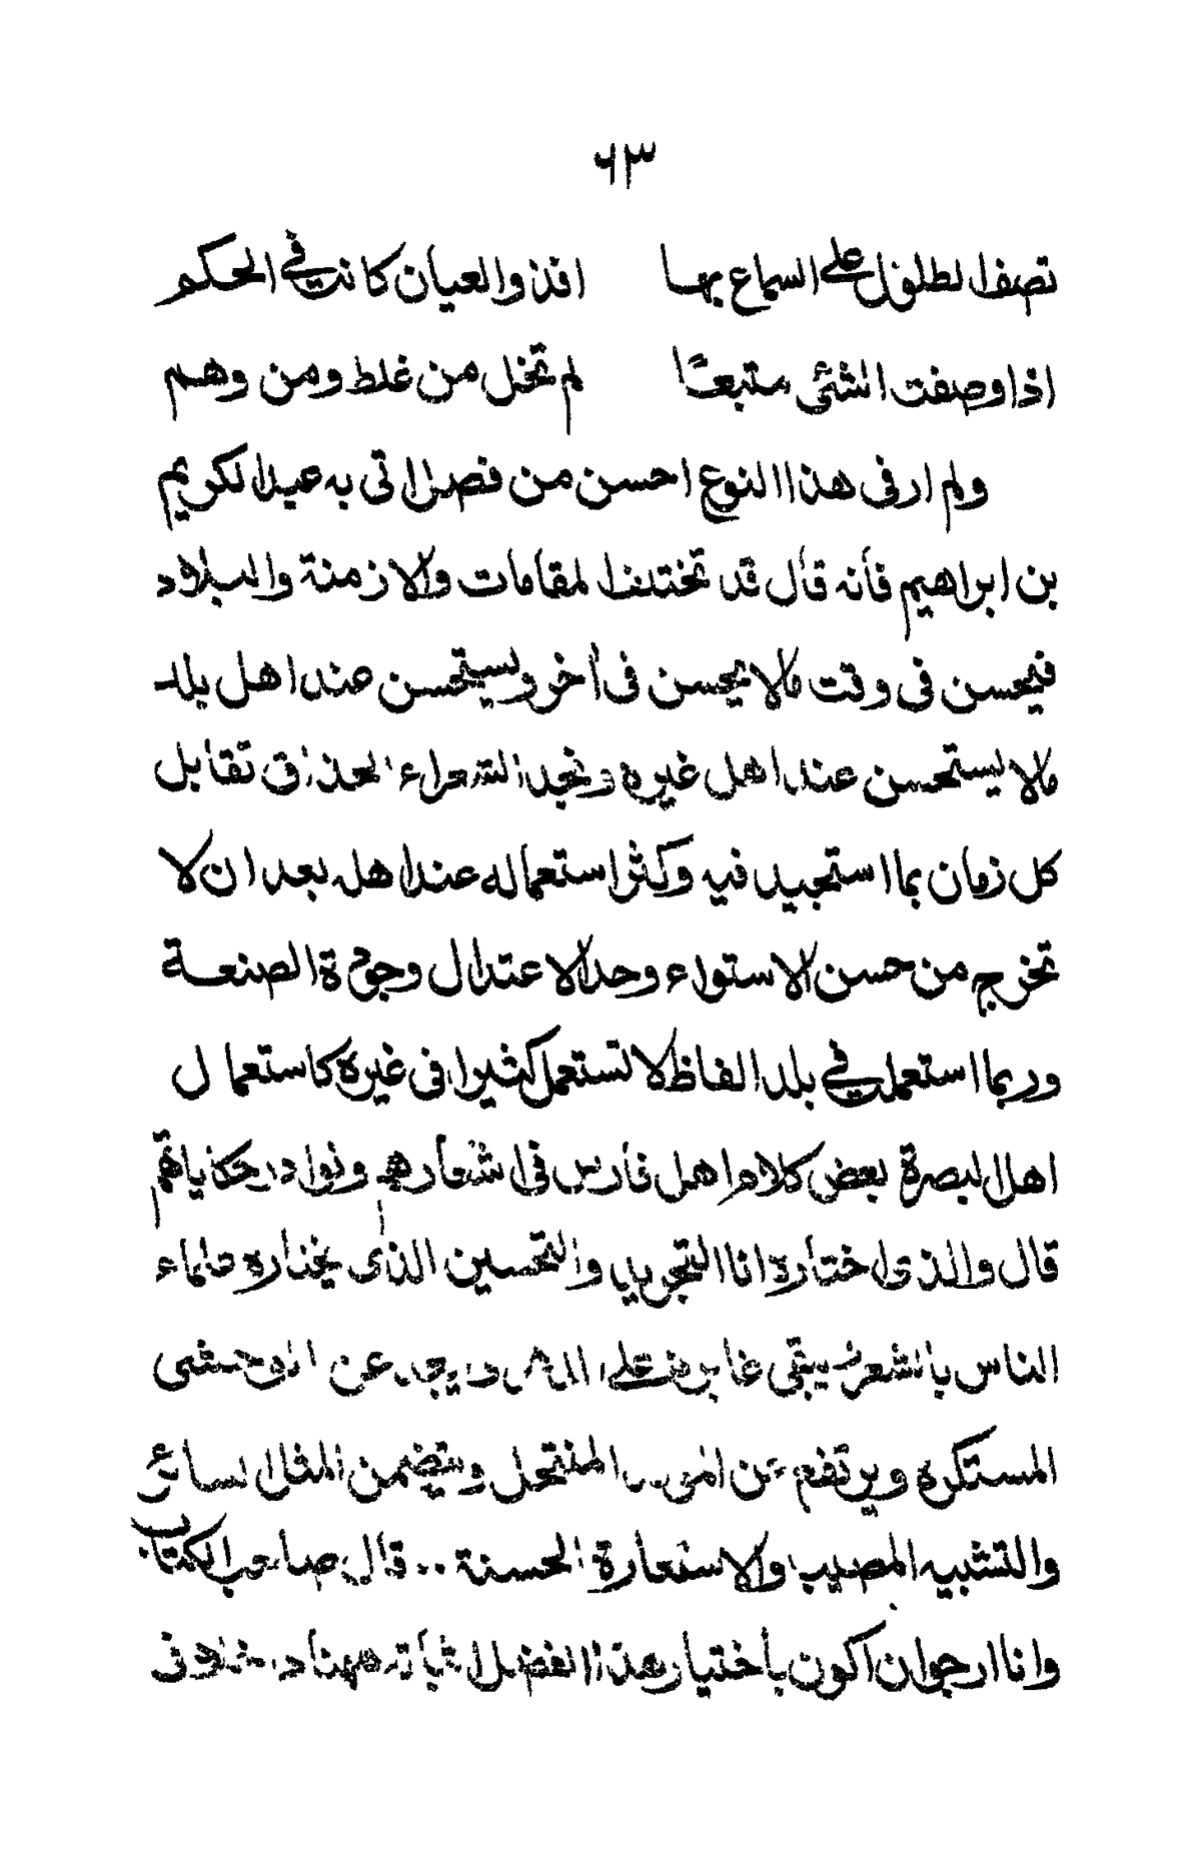 ٦٣
تصف الطلول على السماع بها افذو العيان كانت في الحكم
اذا وصفت الشئى متبعًا لم تخل من غلط ومن وهم
ولم ار فى هذا النوع احسن من فصل اتى به عبد الكريم
بن ابراهيم فأنه قال قد تختلف المقامات والازمنة والبلاد
فيحسن فى وقت مالا يحسن فى أخر ويستحسن عند اهل بلد
مالا يستحسن عند اهل غيره ونجد الشعراء الحذاق تقابل
كل زمان بما استجيد فيه وكثر استعماله عند اهله بعد ان لا
تخرج من حسن الاستواء وحد الاعتدال وجودة الصنعة
وربما استعملت في بلد الفاظ لا تستعمل كثيرا فى غيره كاستعمال
اهل البصرة بعض كلام اهل فارس فى اشعارهم ونوادر حكاياتهم
قال والذى اختاره انا التجويد والتحسين الذى يختاره علماء
الناس بالشعر يبقى غابره على الدهر ويبعد عن الوحشى
المستكره ويرتفع عن المولد المنتحل ويتضمن المثل السائع
والتشبيه المصيب والاستعارة الحسنة ٠٠ قال صاحب الكتاب
وانا ارجو ان اكون باختيار هذا الفضل اثباته ههنا د